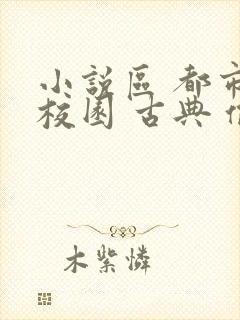 小說區 都市
校園 古典
木紫憐